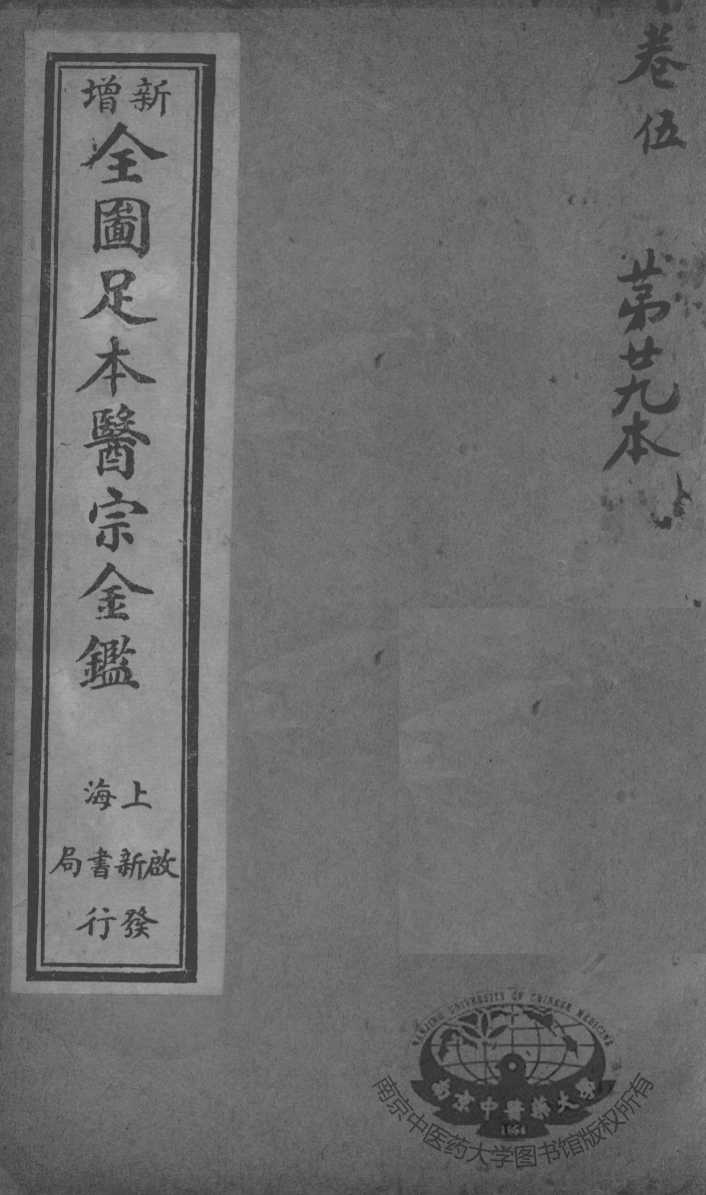 卷伍 第廿九本
新增
全圖足本醫宗金鑑
上海
啟新書局
發行
NANJING UNIVERSITY OF CHINESE MEDICINE
南京中醫藥大學
1954
南京中医药大学图书馆版权所有